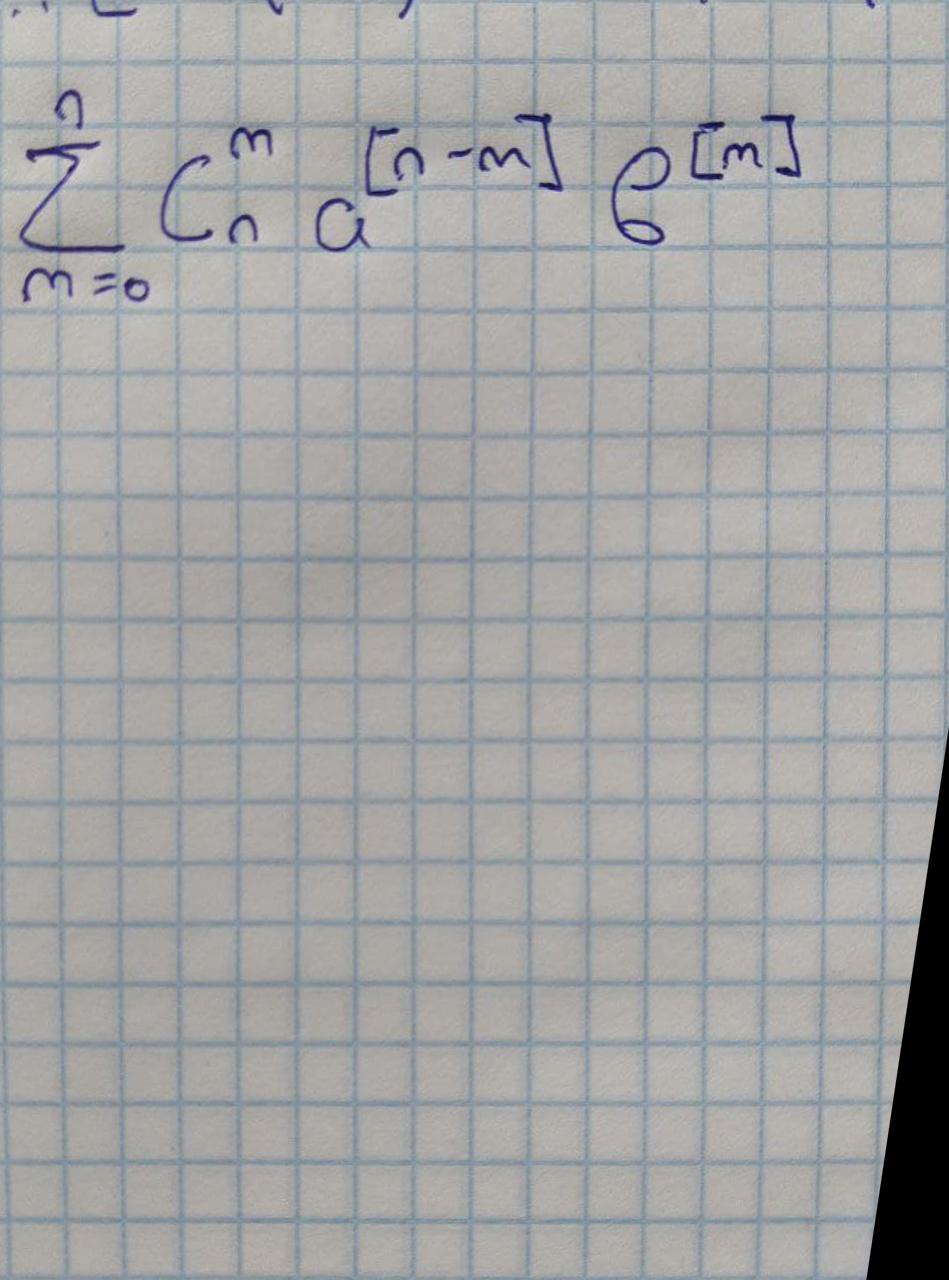 \sum_{m=0}^{n} C_n^m a^{[n-m]} b^{[m]}